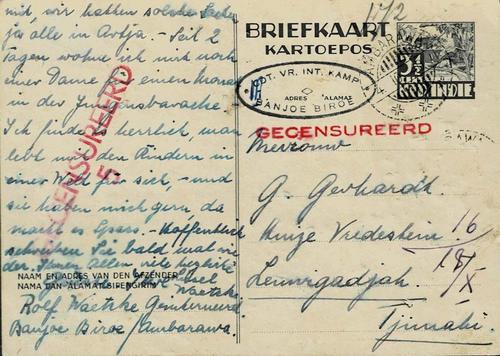 mit, wir hatten solche
ja alle in - Seit 2
Tagen wohne ich mit noch
einer Dame für einen Monat
in der Jungensbaracke.
Ich finde es herrlich, man
lebt mit den Kindern in
einer Welt für sich, - und
sie haben mich gern, da
macht es - Hoffentlich
schreiben Sie bald mal wie
der. Ihnen Allen viele herzliche
NAAM EN ADRES VAN DEN AFZENDER
NAMA DAN ALAMAT SIPENGIRIM
Waetzke
Rolf Waetzke Geinterneerd
Banjoe Biroe / Ambarawa.
GECENSUREERD
5
11/2
BRIEFKAART
KARTOEPOS
3½
CENT
NED. INDIE
AMBARAWA
GOT. VR. INT. KAMP
ADRES ALAMAT
BANJOE BIROE
GECENSUREERD
Mevrouw
G. Gerhardt
Huize Vredestein
16
18/X
Lemergadjah
Tjimahi